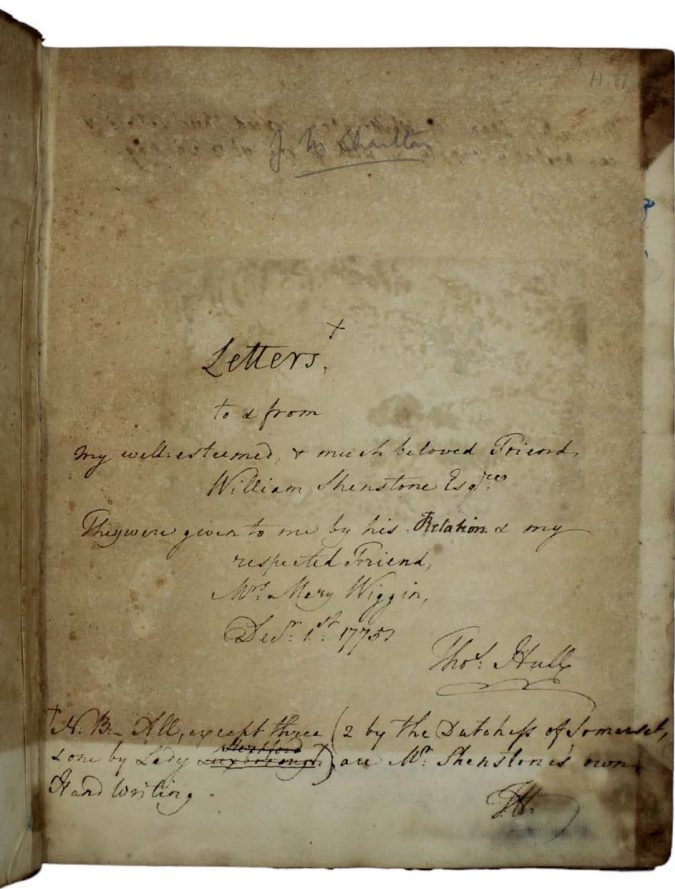 Letters, +
to & from
My well-esteemed, & much beloved Friend,
William Shenstone Esqre.
They were given to me by his Relation & my
respected Friend,
Mrs. Mary Wiggin,
Decr. 1st. 1775
Thos. Hull
+ N.B. - All, except three (2 by the Dutchess of Somerset,
& one by Lady Luxborough Hertford) are Mr. Shenstone's own
Hand Writing.
TH.